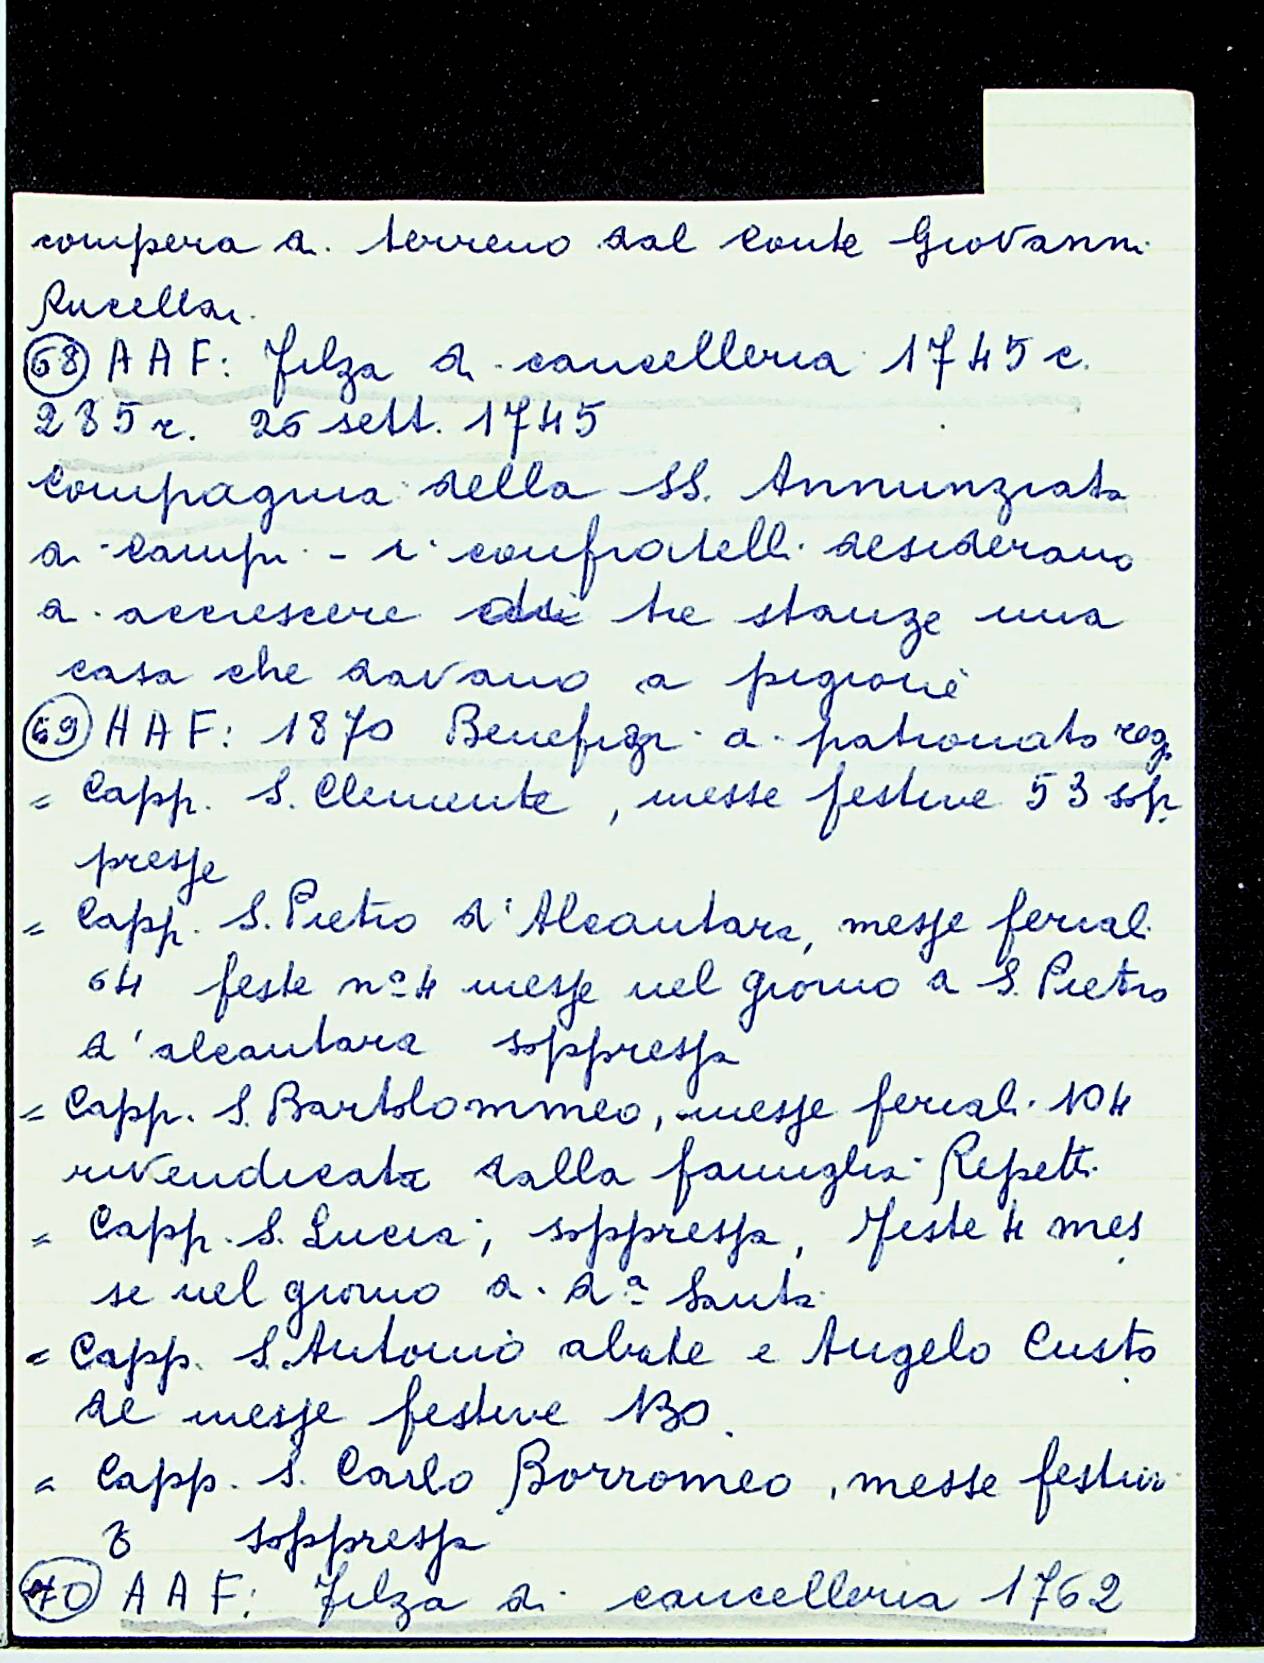 compera di terreno dal conte Giovanni
Rucellai.
68 AAF: Filza di cancelleria 1745 c.
285 r. 26 sett. 1745
Compagnia della SS. Annunziata
di Campi - i confratelli desiderano
di accrescere di tre stanze una
casa che davano a pigione
69 AAF: 1870 Benefizi di patronato reg.
= Capp. S. Clemente, messe festive 53 sop
presse
= Capp. S. Pietro d'Alcantara, messe feriali
64 feste nº 4 messe nel giorno di S. Pietro
d'alcantara soppressa
= Capp. S. Bartolommeo, messe feriali 104
rivendicata dalla famiglia Repetti
= Capp. S. Lucia; soppressa, feste 4 mes
se nel giorno di dª Santa
= Capp. S. Antonio abate e Angelo Custo
de messe festive 130.
= Capp. S. Carlo Borromeo, messe festive
8 soppressa
70 AAF: Filza di cancelleria 1762